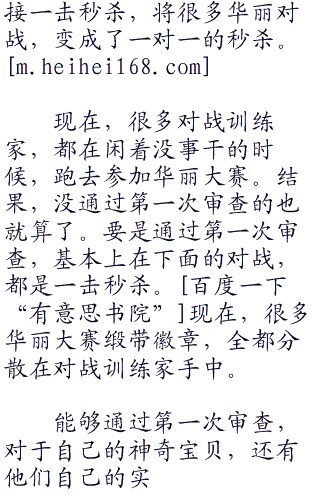 接一击秒杀，将很多华丽对
战，变成了一对一的秒杀。
[m.heihei168.com]
现在，很多对战训练
家，都在闲着没事干的时
候，跑去参加华丽大赛。结
果，没通过第一次审查的也
就算了。要是通过第一次审
查，基本上在下面的对战，
都是一击秒杀。[百度一下
“有意思书院”]现在，很多
华丽大赛缎带徽章，全都分
散在对战训练家手中。
能够通过第一次审查，
对于自己的神奇宝贝，还有
他们自己的实